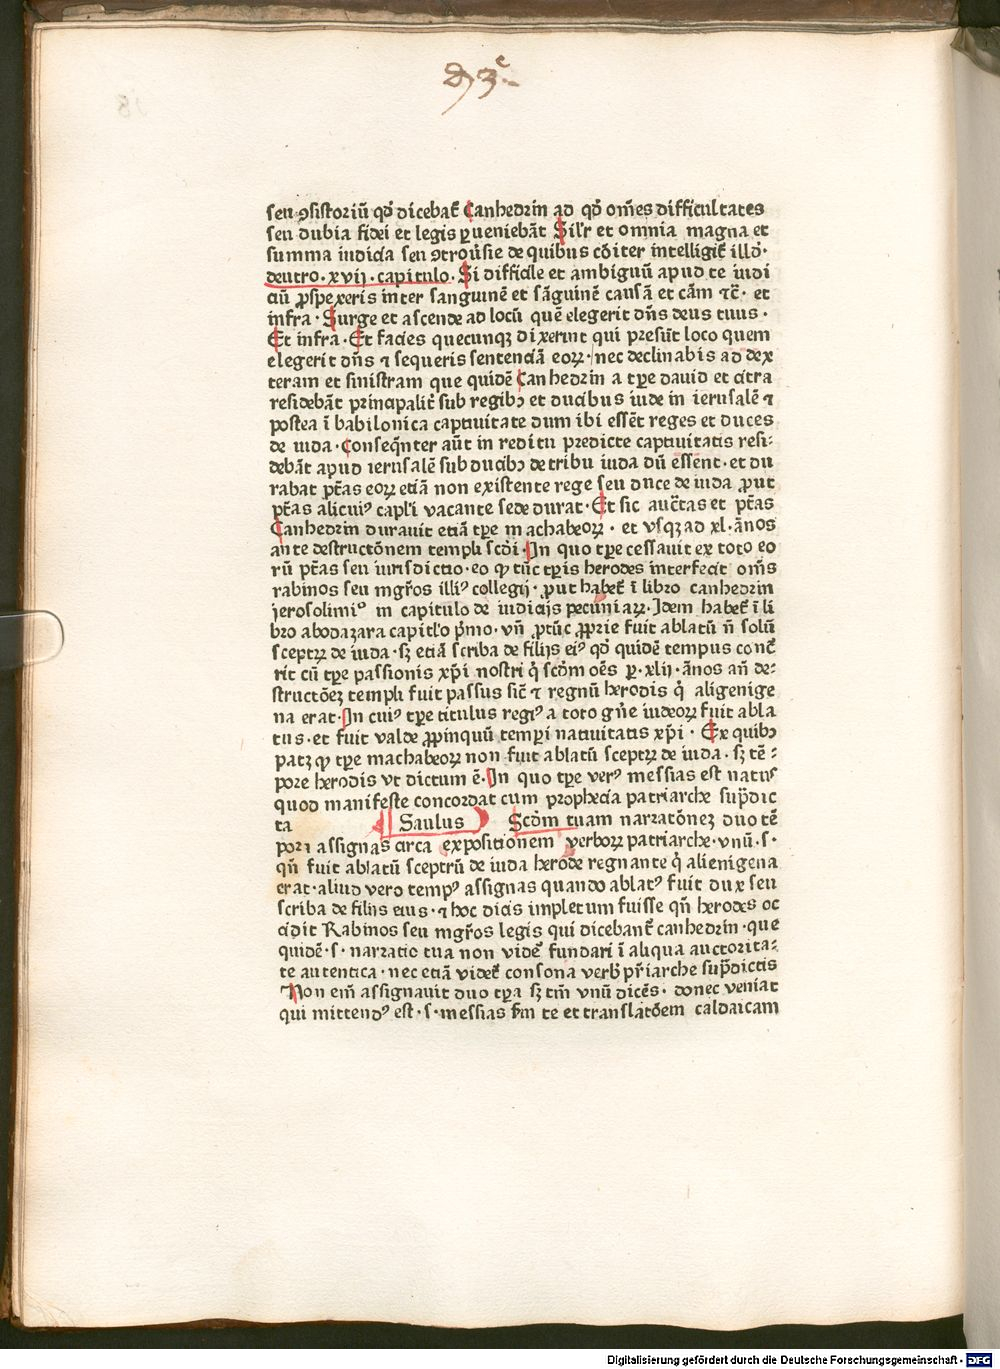 seu ꝯsistoriū qd̓ dicebat̉ Canhedrin ad qd̓ om̄es difficultates
seu dubia fidei et legis ꝑueniebāt Sil'r et omnia magna et
summa iudicia seu ꝯtrou̓sie de quibus cōiter intelligit̉ illd̓·
deutro·xvij·capitulo·Si difficile et ambiguū apud te iudi
ciū ꝓspexeris inter sanguinē et sāguinē causā et cām ⁊c̄· et
infra·Surge et ascende ad locū quē elegerit dn̄s deus tuus·
Et infra·Et facies quecunqꝫ dixerint qui presūt loco quem
elegerit dn̄s ⁊ sequeris sentenciā eoꝝ·nec declinabis ad dex
teram et sinistram que quidē Canhedrin a tꝑe dauid et citra
residebāt principalit̉ sub regibꝰ et ducibus iude in ierusalē ⁊
postea ī babilonica captiuitate dum ibi essēt reges et duces
de iuda·Conseqn̄ter aūt in reditu predicte captiuitatis resi-
debāt apud ierusalē sub ducibꝰ de tribu iuda dū essent·et du
rabat pt̄as eoꝝ etiā non existente rege seu duce de iuda ꝓut
pt̄as alicuiꝰ capl'i vacante sede durat·Et sic auct̄as et pt̄as
Canhedrin durauit etiā tꝑe machabeoꝝ· et vsqꝫ ad xl·ānos
ante destructōnem templi scd̓i·In quo tꝑe cessauit ex toto eo
rū pt̄as seu iurisdictio·eo ꝙ tūc tꝑis herodes interfecit om̄s
rabinos seu mgr̄os illiꝰ collegij·ꝓut habet̉ ī libro canhedrin
ierosolimiº in capitulo de iudicijs pecuniaꝝ·Idem habet̉ ī li
bro abodazara capitl'o p̓mo·vn̄ ꝓtūc ꝓprie fuit ablatū n̄ solū
sceptꝝ de iuda·sꝫ etiā scriba de filijs eiꝰ qd̓ quidē tempus conc̓
rit cū tꝑe passionis xp̄i nostri q̓ scd̓m oēs ꝑ·xlij·ānos an̄ de-
structōeꝫ templi fuit passus sic̄ ⁊ regnū herodis q̓ aligenige
na erat·In cuiꝰ tꝑe titulus regiꝰ a toto gn̄e iudeoꝝ fuit abla
tus·et fuit valde ꝓpinquū tempi natiuitatis xp̄i·Ex quibꝰ
patꝫ ꝙ tꝑe machabeoꝝ non fuit ablatū sceptꝝ de iuda·sꝫ tē-
pore herodis vt dictum ē·In quo tꝑe verꝰ messias est natus
quod manifeste concordat cum prophecia patriarche sup̄dic
ta Saulus Scd̓m tuam narratōneꝫ duo tē
pora assignas circa expositionem verboꝝ patriarche·vnū·s·
qn̄ fuit ablatū sceptrū de iuda herode regnante q̓ alienigena
erat·aliud vero tempꝰ assignas quando ablatꝰ fuit dux seu
scriba de filijs eius·⁊ hoc dicis impletum fuisse qn̄ herodes oc
cidit Rabinos seu mgr̄os legis qui dicebant̉ canhedrin·que
quidē·s·narratio tua non videt̉ fundari ī aliqua auctorita-
te autentica·nec etiā videt̉ consona verb̓ pr̄iarche sup̄dictis
Non em̄ assignauit duo tꝑa sꝫ tm̄ vnū dicēs·donec veniat
qui mittendꝰ est·s·messias fm te et translatōem caldaicam
Digitalisierung gefördert durch die Deutsche Forschungsgemeinschaft - DFG